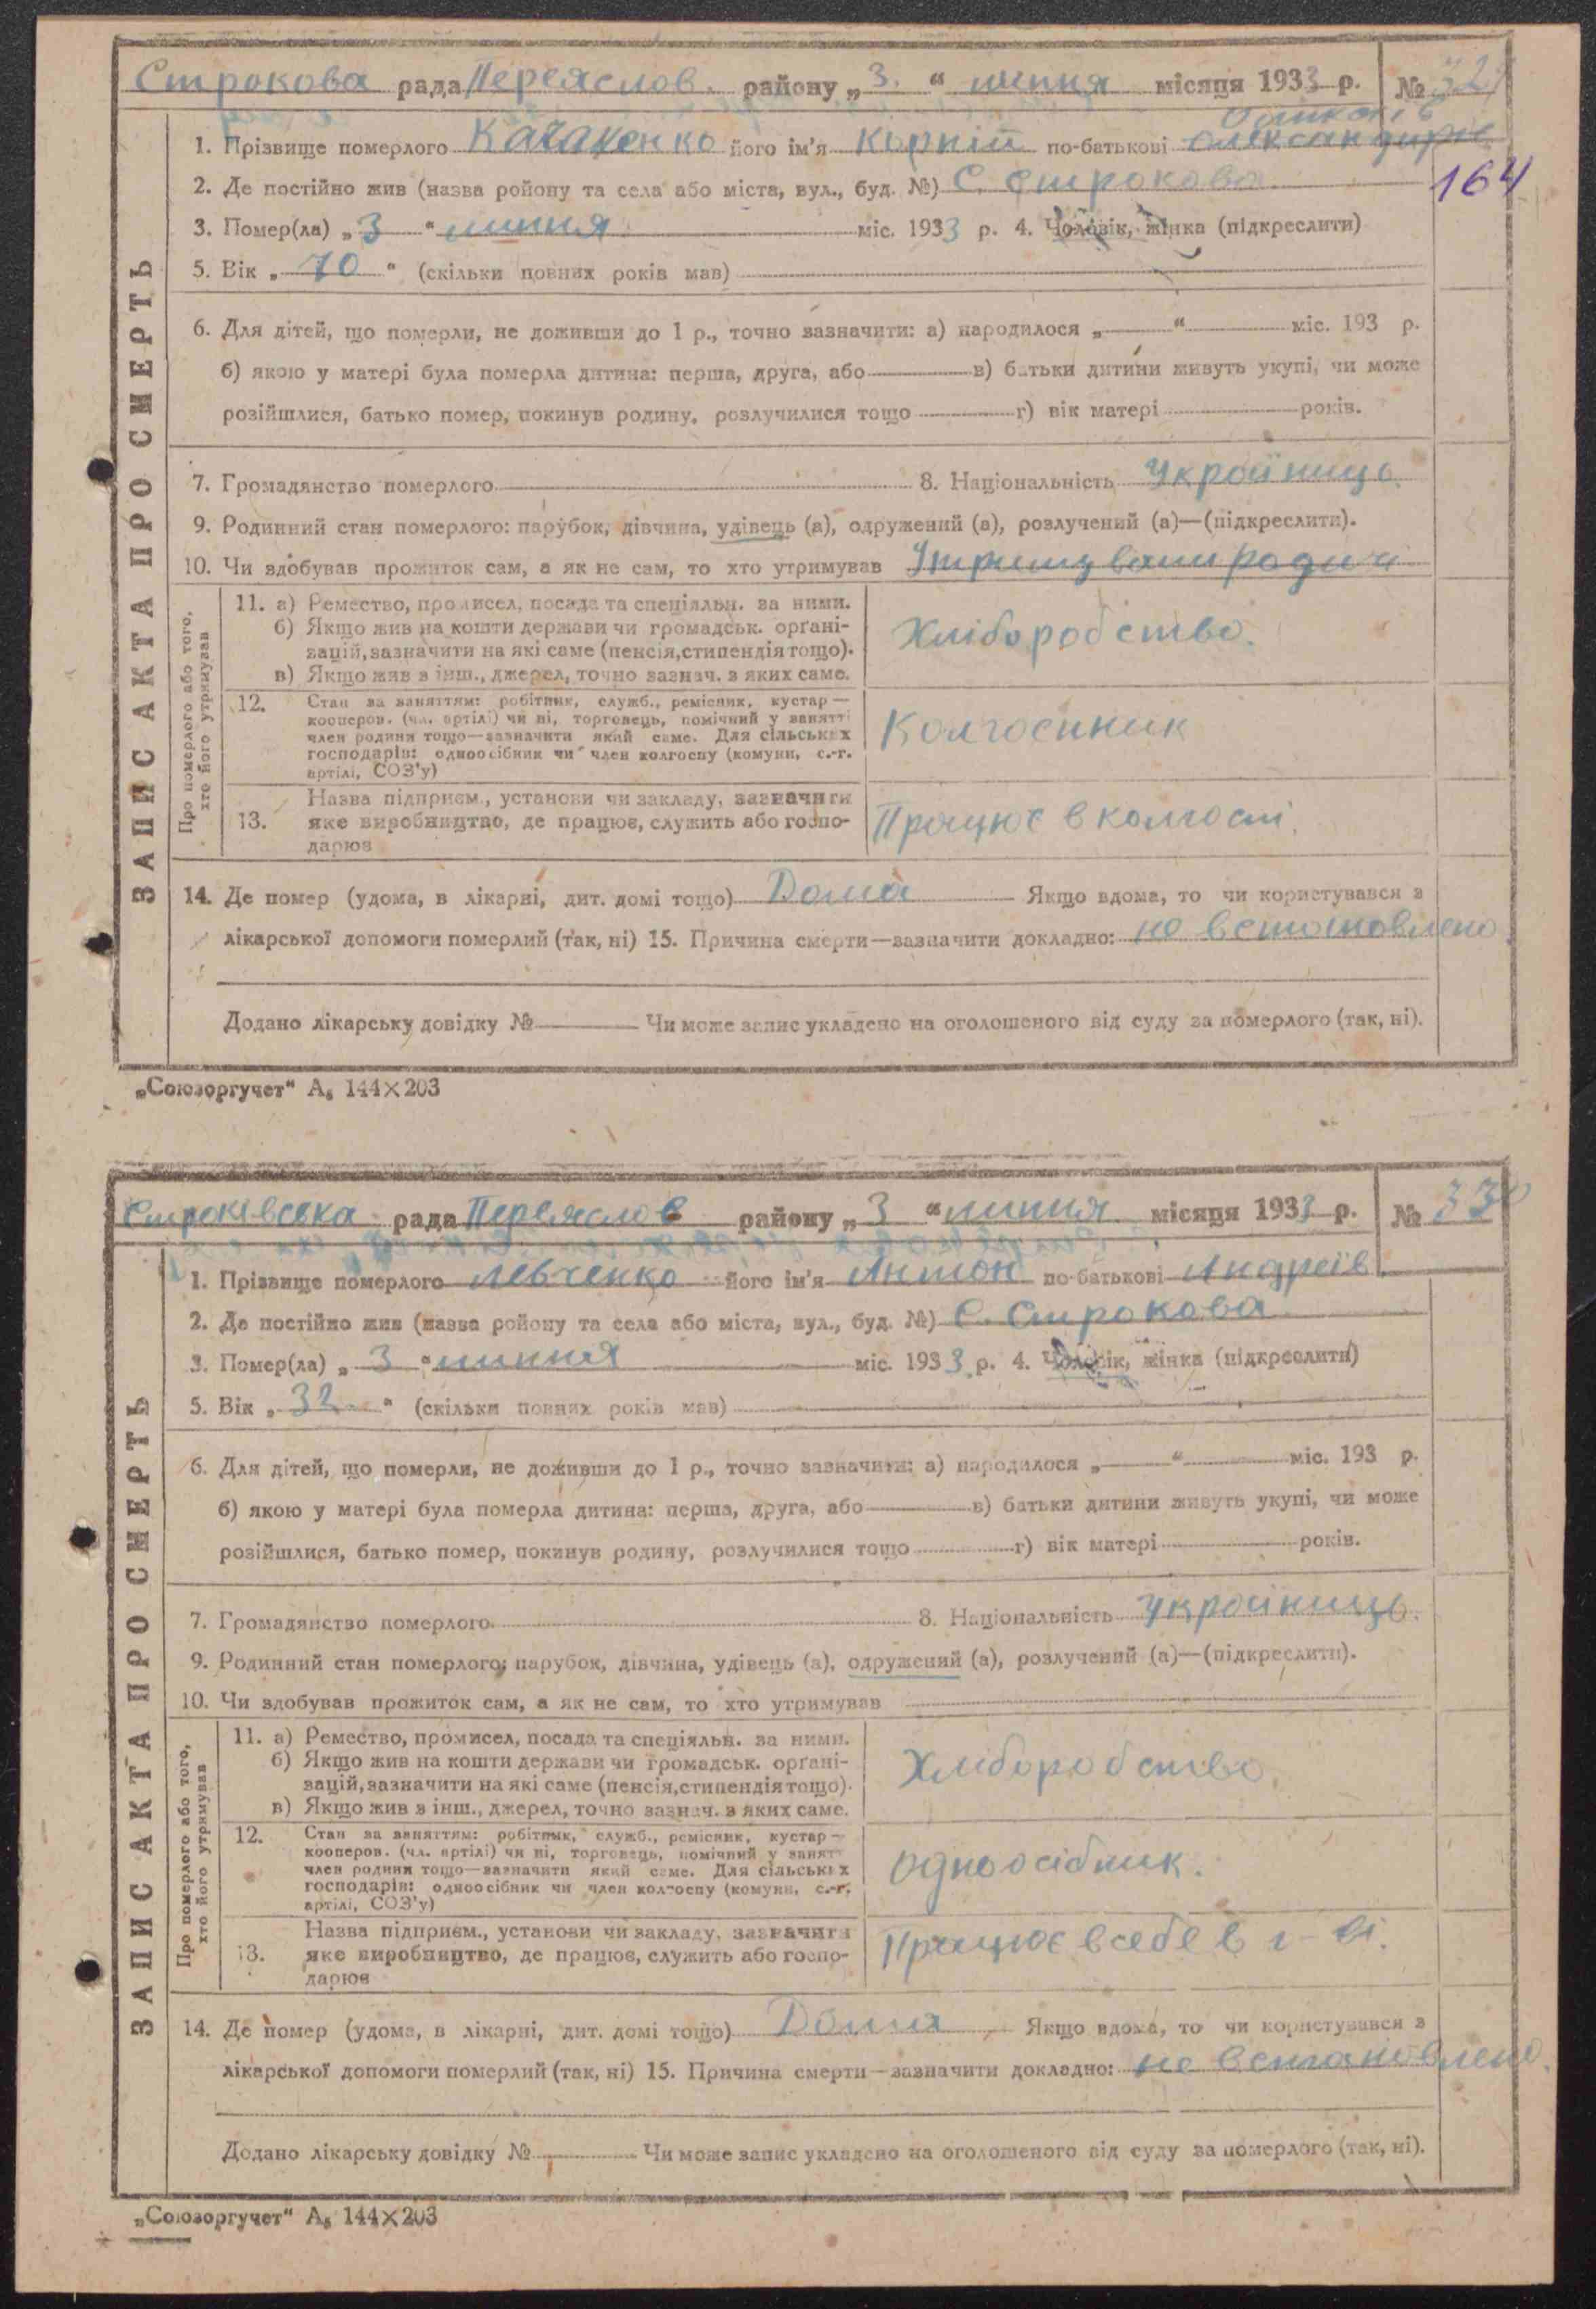 Строкова рада Переяслов. району „3.“ липня місяця 1933 р. №
164
ЗАПИС АКТА ПРО СМЕРТЬ
1. Прізвище померлого його ім'я Корній по-батькові
2. Де постійно жив (назва ройону та села або міста, вул., буд. №) С. Строкова
3. Помер(ла) „3“ липня міс. 1933 р. 4. Чоловік, жінка (підкреслити)
5. Вік „70“ (скільки повних років мав)
6. Для дітей, що померли, не доживши до 1 р., точно зазначити: а) народилося „ “ міс. 193 р.
б) якою у матері була померла дитина: перша, друга, або в) батьки дитини живуть укупі, чи може
розійшлися, батько помер, покинув родину, розлучилися тощо г) вік матері років.
7. Громадянство померлого 8. Національність Україниць.
9. Родинний стан померлого: парубок, дівчина, удівець (а), одружений (а), розлучений (а)—(підкреслити).
10. Чи здобував прожиток сам, а як не сам, то хто утримував Утримували родичі
Про померлого або того,
хто його утримував
11. а) Ремество, промисел, посада та спеціяльн. за ними.
б) Якщо жив на кошти держави чи громадськ. орґані-
зацій, зазначити на які саме (пенсія, стипендія тощо).
в) Якщо жив з інш., джерел, точно зазнач. з яких саме.
Хліборобство.
12. Стан за заняттям: робітник, служб., ремісник, кустар —
кооперов. (чл. артілі) чи ні, торговець, помічний у занятті
член родини тощо—зазначити який саме. Для сільських
господарів: одноосібник чи член колгоспу (комуни, с.-г.
артілі, СОЗ'у)
Колгоспник
13. Назва підприєм., установи чи закладу, зазначити
яке виробництво, де працює, служить або госпо-
дарює
Працює в колгоспі.
14. Де помер (удома, в лікарні, дит. домі тощо) Дома Якщо вдома, то чи користувався з
лікарської допомоги померлий (так, ні) 15. Причина смерти—зазначити докладно: не встановлено
Додано лікарську довідку № Чи може запис укладено на оголошеного від суду за померлого (так, ні).
„Союзоргучет“ А₅ 144×203
Строківська рада Переяслов району „3“ липня місяця 1933 р. №
ЗАПИС АКТА ПРО СМЕРТЬ
1. Прізвище померлого Левченко його ім'я Антон по-батькові Андреїв
2. Де постійно жив (назва ройону та села або міста, вул., буд. №) С. Строкова
3. Помер(ла) „3“ липня міс. 1933 р. 4. Чоловік, жінка (підкреслити)
5. Вік „32“ (скільки повних років мав)
6. Для дітей, що померли, не доживши до 1 р., точно зазначити: а) народилося „ “ міс. 193 р.
б) якою у матері була померла дитина: перша, друга, або в) батьки дитини живуть укупі, чи може
розійшлися, батько помер, покинув родину, розлучилися тощо г) вік матері років.
7. Громадянство померлого 8. Національність Україниць.
9. Родинний стан померлого: парубок, дівчина, удівець (а), одружений (а), розлучений (а)—(підкреслити).
10. Чи здобував прожиток сам, а як не сам, то хто утримував
Про померлого або того,
хто його утримував
11. а) Ремество, промисел, посада та спеціяльн. за ними.
б) Якщо жив на кошти держави чи громадськ. орґані-
зацій, зазначити на які саме (пенсія, стипендія тощо).
в) Якщо жив з інш., джерел, точно зазнач. з яких саме.
Хліборобство.
12. Стан за заняттям: робітник, служб., ремісник, кустар —
кооперов. (чл. артілі) чи ні, торговець, помічний у занятті
член родини тощо—зазначити який саме. Для сільських
господарів: одноосібник чи член колгоспу (комуни, с.-г.
артілі, СОЗ'у)
одноосібник.
13. Назва підприєм., установи чи закладу, зазначити
яке виробництво, де працює, служить або госпо-
дарює
Працює в себе в г-ві.
14. Де помер (удома, в лікарні, дит. домі тощо) Дома Якщо вдома, то чи користувався з
лікарської допомоги померлий (так, ні) 15. Причина смерти—зазначити докладно: не встановлено.
Додано лікарську довідку № Чи може запис укладено на оголошеного від суду за померлого (так, ні).
„Союзоргучет“ А₅ 144×203